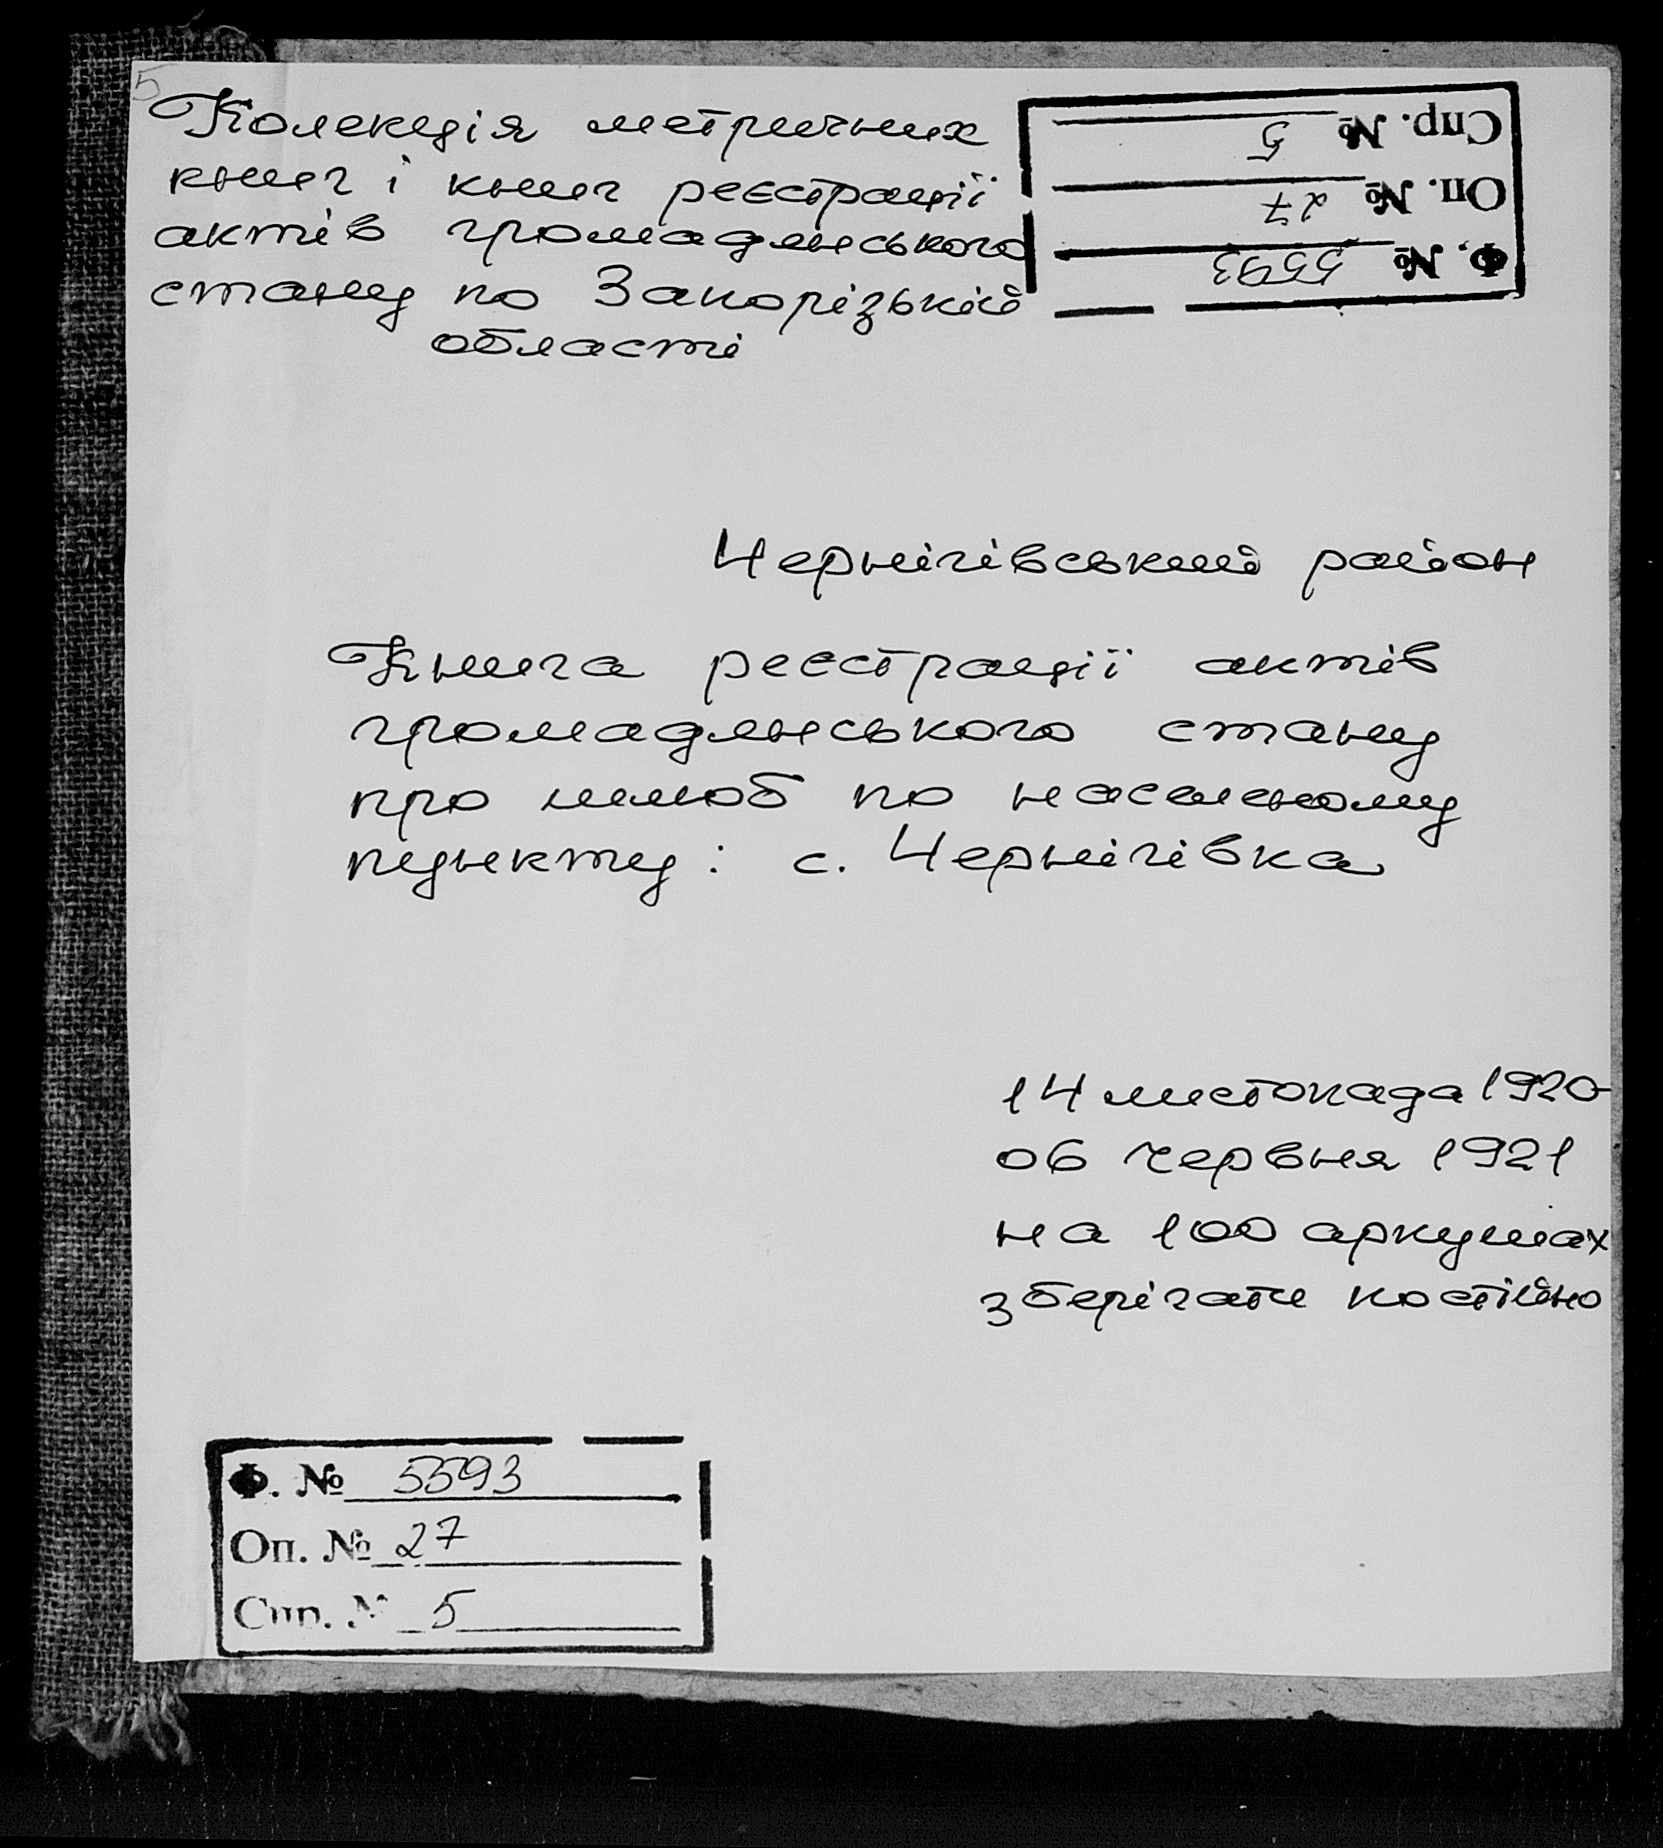 5
Колекція метричних
книг і книг реєстрації
актів громадянського
стану по Запорізькій
області
Спр. № 5
Оп. № 27
Ф. № 5593
Чернігівський район
Книга реєстрації актів
громадянського стану
про шлюб по населеному
пункту: с. Чернігівка
14 листопада 1920-
06 червня 1921
на 100 аркушах
зберігати постійно
Ф. № 5593
Оп. № 27
Спр. № 5